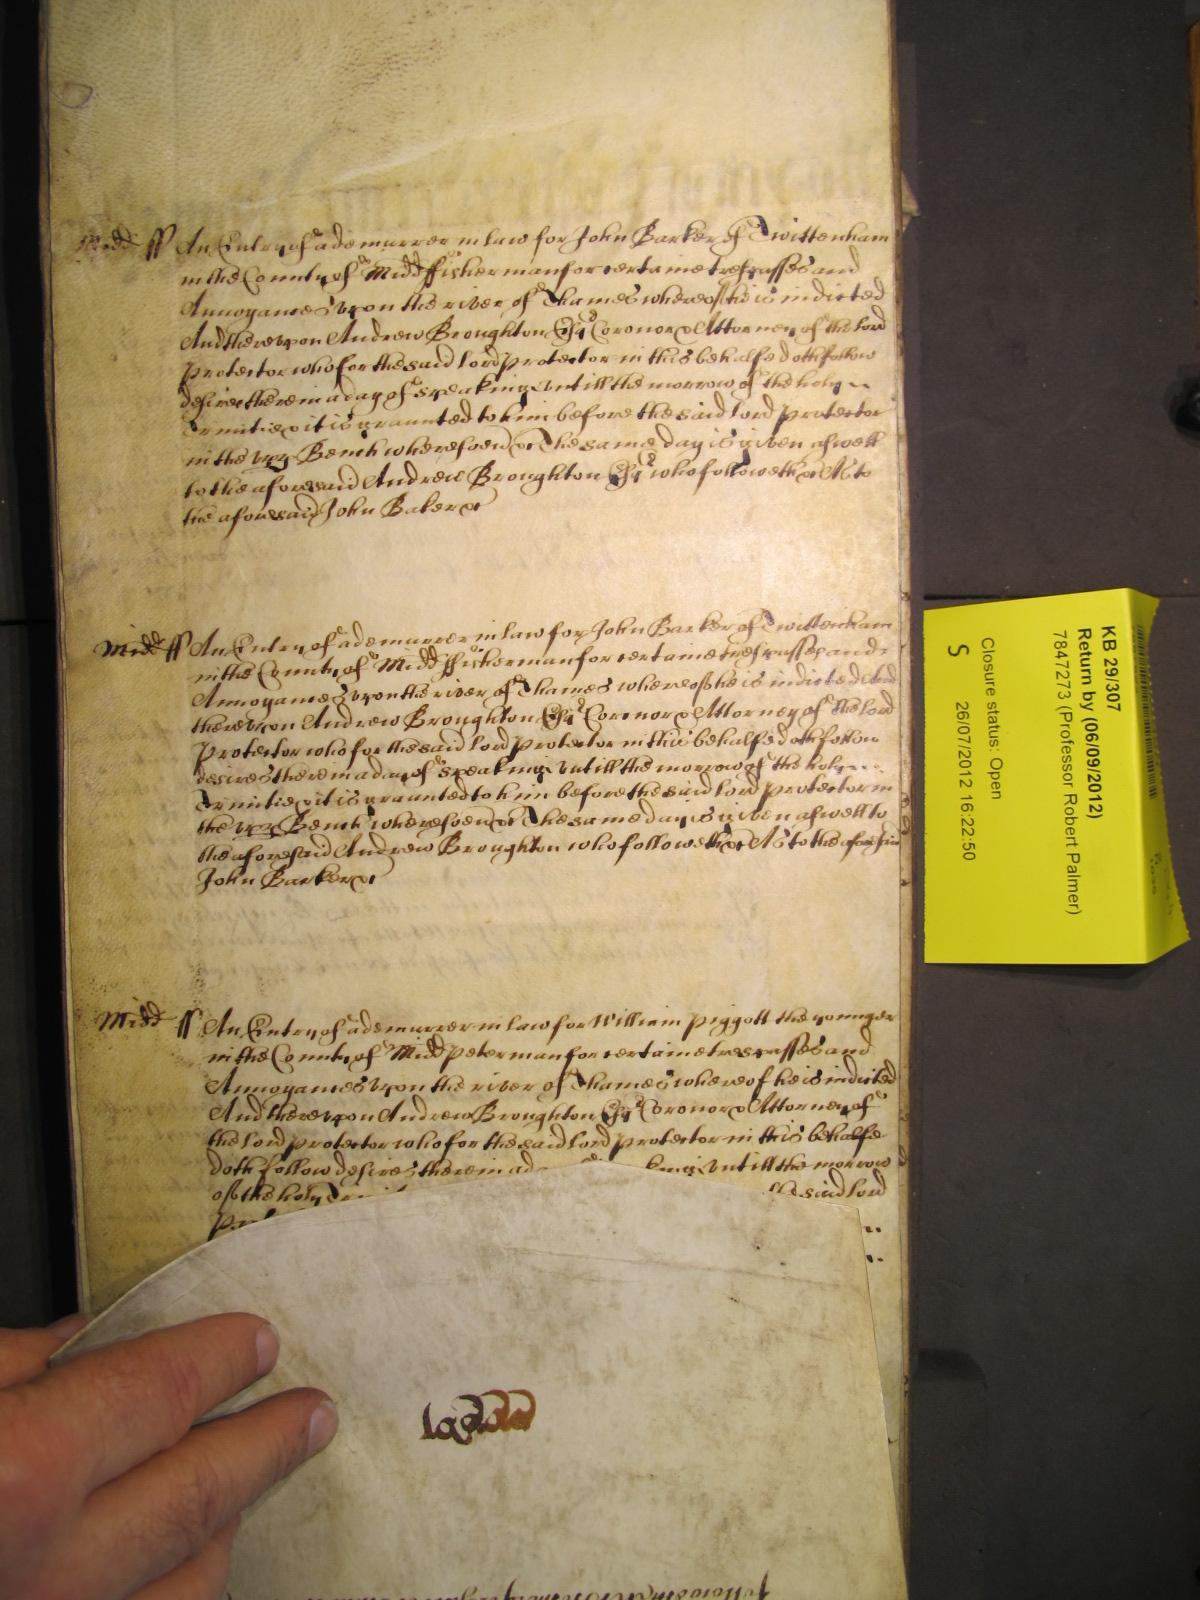 Midd ss An Entry of a demurrer in law for John Barker of Twittenham
in the County of Midd ffisherman for certaine trespasses and
Annoyances upon the river of Thames whereof he is indicted
And thereupon Andrew Broughton Esqr Coronor & Attorney of the lord
protector who for the said lord protector in this behalfe doth follow
desires therein a day of speaking untill the morrow of the holy
Trinitie & it is graunted to him before the said lord protector
in the upp Bench wheresoever &c The same day is given aswell
to the aforesaid Andrew Broughton Esqr who followeth &c As to
the aforesaid John Baker &c
Midd ss An Entry of a demurrer in law for John Barker of Twittenham
in the County of Midd ffisherman for certaine trespasses and
Annoyances upon the river of Thames whereof he is indicted And
thereupon Andrew Broughton Esqr Coronor & Attorney of the lord
Protector who for the said lord protector in this behalfe doth follow
desires therein a day of speaking untill the morrow of the holy
Trinitie & it is graunted to him before the said lord protector in
the upp Bench wheresoever &c The same day is given aswell to
the aforesaid Andrew Broughton who followeth &c As to the aforesaid
John Barker &c
Midd ss An Entry of a demurrer in law for William Piggott the younger
in the County of Midd Peterman for certaine trespasses and
Annoyances upon the river of Thames whereof he is indicted
And thereupon Andrew Broughton Esqr Coronor & Attorney of
the lord protector who for the said lord protector in this behalfe
doth follow desires therein a untill the morrow
of the holy said lord
KB 29/307
Return by (06/09/2012)
7847273 (Professor Robert Palmer)
Closure status: Open
S 26/07/2012 16:22:50